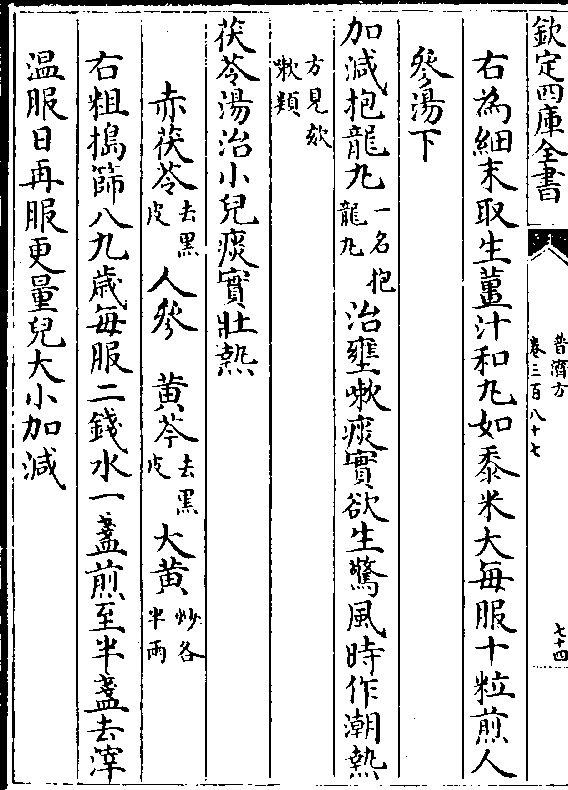 欽定四庫全書
普濟方
卷三百八十七
七十四
右為細末取生薑汁和丸如黍米大每服十粒煎人
參湯下
加減抱龍丸一名抱龍丸治壅嗽痰實欲生驚風時作潮熱
方見欬嗽類
茯苓湯治小兒痰實壯熱
赤茯苓去黑皮 人參 黄芩去黑皮 大黄炒各半兩
右粗搗篩八九歲每服二錢水一盞煎至半盞去滓
温服日再服更量兒大小加減